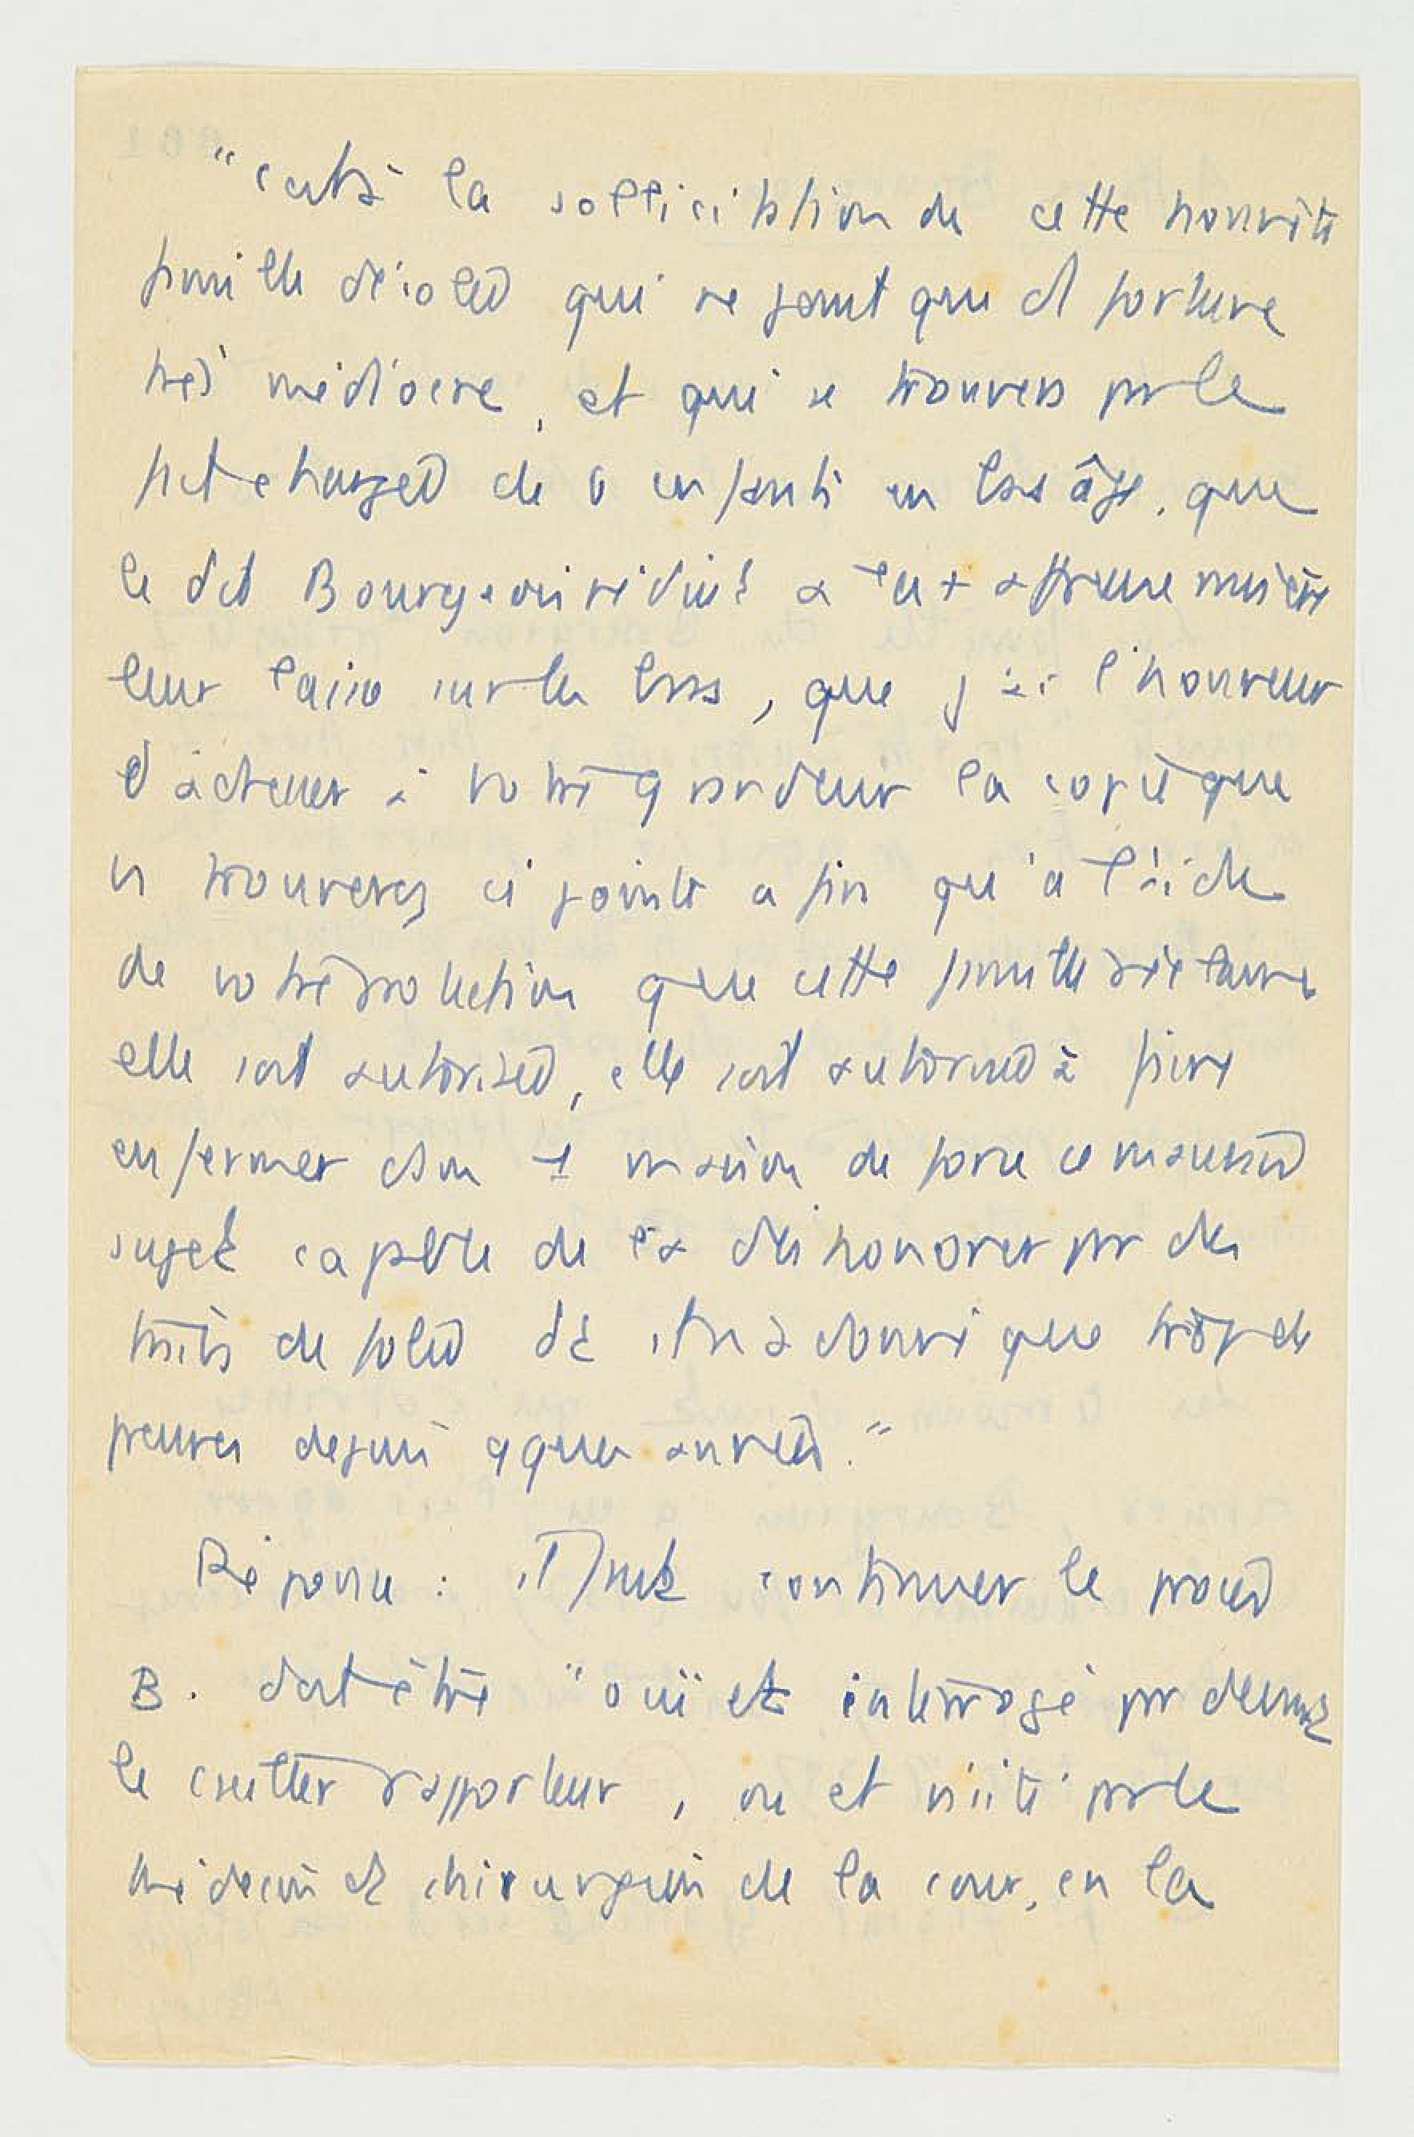 "c'est à la sollicitation de cette honnête
famille désolée qui ne jouit que d'1 fortune
très médiocre, et qui se trouvera par le
fait chargée de 6 enfants en bas âge, que
le dit Bourgeois réduit à la + affreuse misère
leur laisse sur les bras, que j'ai l'honneur
d'adresser à votre grandeur la copie que
v trouverez ci jointe afin qu'à l'aide
de votre protection que cette famille réclame
elle soit autorisée, elle soit autorisée à faire
enfermer dans 1 maison de force ce mauvais
sujet capable de la déshonorer par des
traits de folie dt il n'a donné que trop de
preuves depuis qques années."
Réponse : Il faut continuer le procès
B. doit être "ouï et interrogé par devant
le cseiller rapporteur, vu et visité par le
médecin et chirurgien de la cour, en la